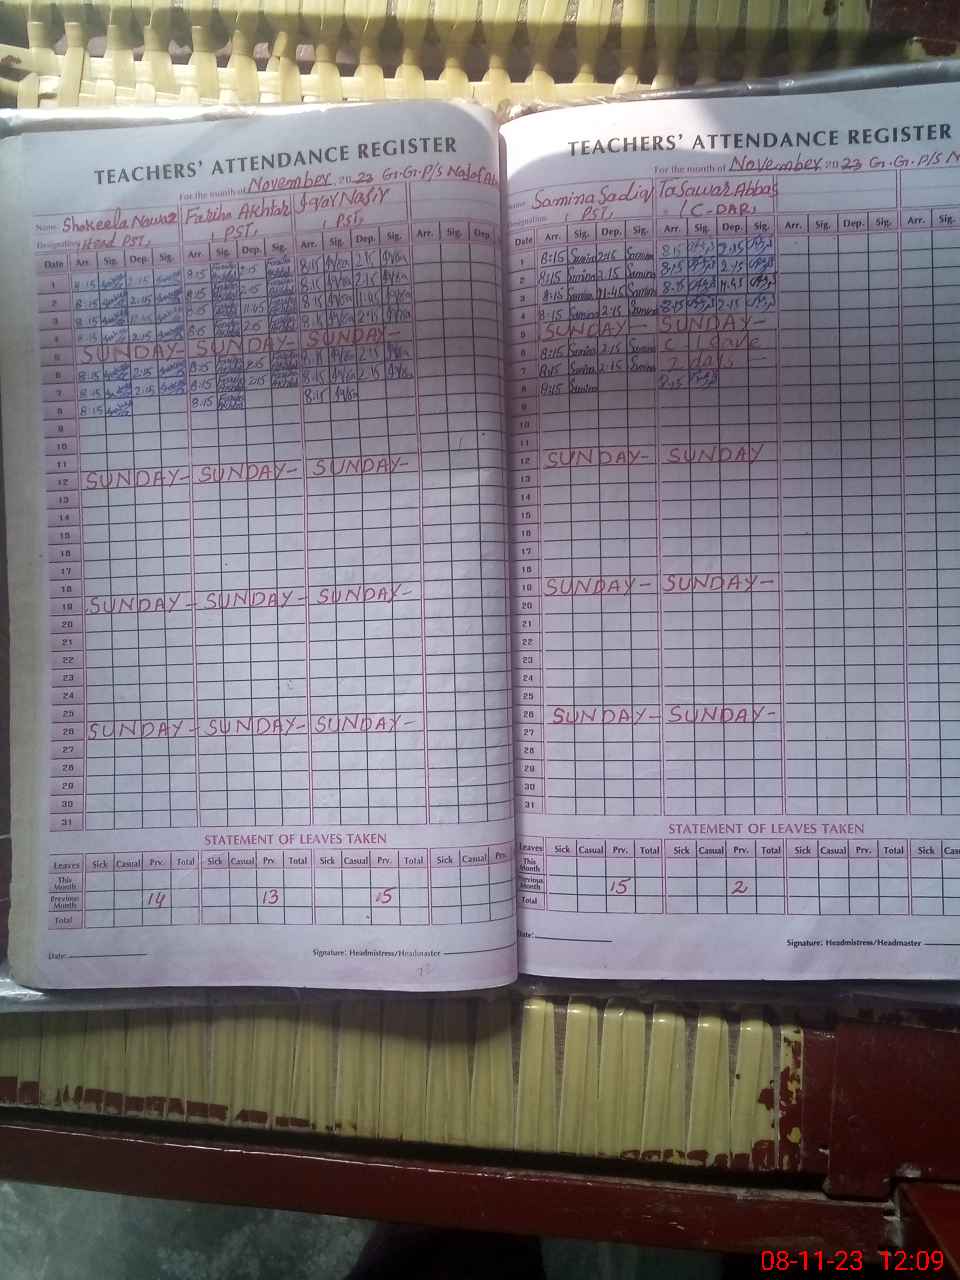 TEACHERS' ATTENDANCE REGISTER
For the month of November 2023 G.G.P/S
Name Shakeela Nawaz Fariha Akhtar Iqra Nasir
Designation Head PST, PST, PST,
Date Arr. Sig. Dep. Sig. Arr. Sig. Dep. Sig. Arr. Sig. Dep. Sig. Arr. Sig. Dep.
1 8:15 2:15 8:15 2:15 8:15 2:15
2 8:15 2:15 8:15 2:15 8:15 2:15
3 8:15 8:15 11:45 8:15 11:45
4 8:15 2:15 8:15 2:15 8:15 2:15
5 SUNDAY- SUNDAY- SUNDAY-
6 8:15 2:15 8:15 2:15 8:15 2:15
7 8:15 2:15 8:15 2:15 8:15 2:15
8 8:15 8:15 8:15
9
10
11
12 SUNDAY- SUNDAY- SUNDAY-
13
14
15
16
17
18
19 SUNDAY- SUNDAY- SUNDAY-
20
21
22
23
24
25
26 SUNDAY- SUNDAY- SUNDAY-
27
28
29
30
31
STATEMENT OF LEAVES TAKEN
Leaves Sick Casual Prv. Total Sick Casual Prv. Total Sick Casual Prv. Total Sick Casual Prv.
This Month
Previous Month 14 13 15
Total
Date: Signature: Headmistress/Headmaster
TEACHERS' ATTENDANCE REGISTER
For the month of November 2023 G.G.P/S
Name Samina Sadiq Tasawar Abbas
Designation PST, C-DAR,
Date Arr. Sig. Dep. Sig. Arr. Sig. Dep. Sig. Arr. Sig. Dep. Sig. Arr. Sig.
1 8:15 Samina 2:15 Samina 8:15 2:15
2 8:15 Samina 2:15 Samina 8:15 2:15
3 8:15 Samina 11:45 Samina 8:15 11:45
4 8:15 Samina 2:15 Samina 8:15 2:15
5 SUNDAY- SUNDAY-
6 8:15 Samina 2:15 Samina C leave
7 8:15 Samina 2:15 Samina 2 days
8 8:15 Samina 8:15
9
10
11
12 SUNDAY- SUNDAY
13
14
15
16
17
18
19 SUNDAY- SUNDAY-
20
21
22
23
24
25
26 SUNDAY- SUNDAY-
27
28
29
30
31
STATEMENT OF LEAVES TAKEN
Leaves Sick Casual Prv. Total Sick Casual Prv. Total Sick Casual Prv. Total Sick
This Month
Previous Month 15 2
Total
Date: Signature: Headmistress/Headmaster
08-11-23 12:09